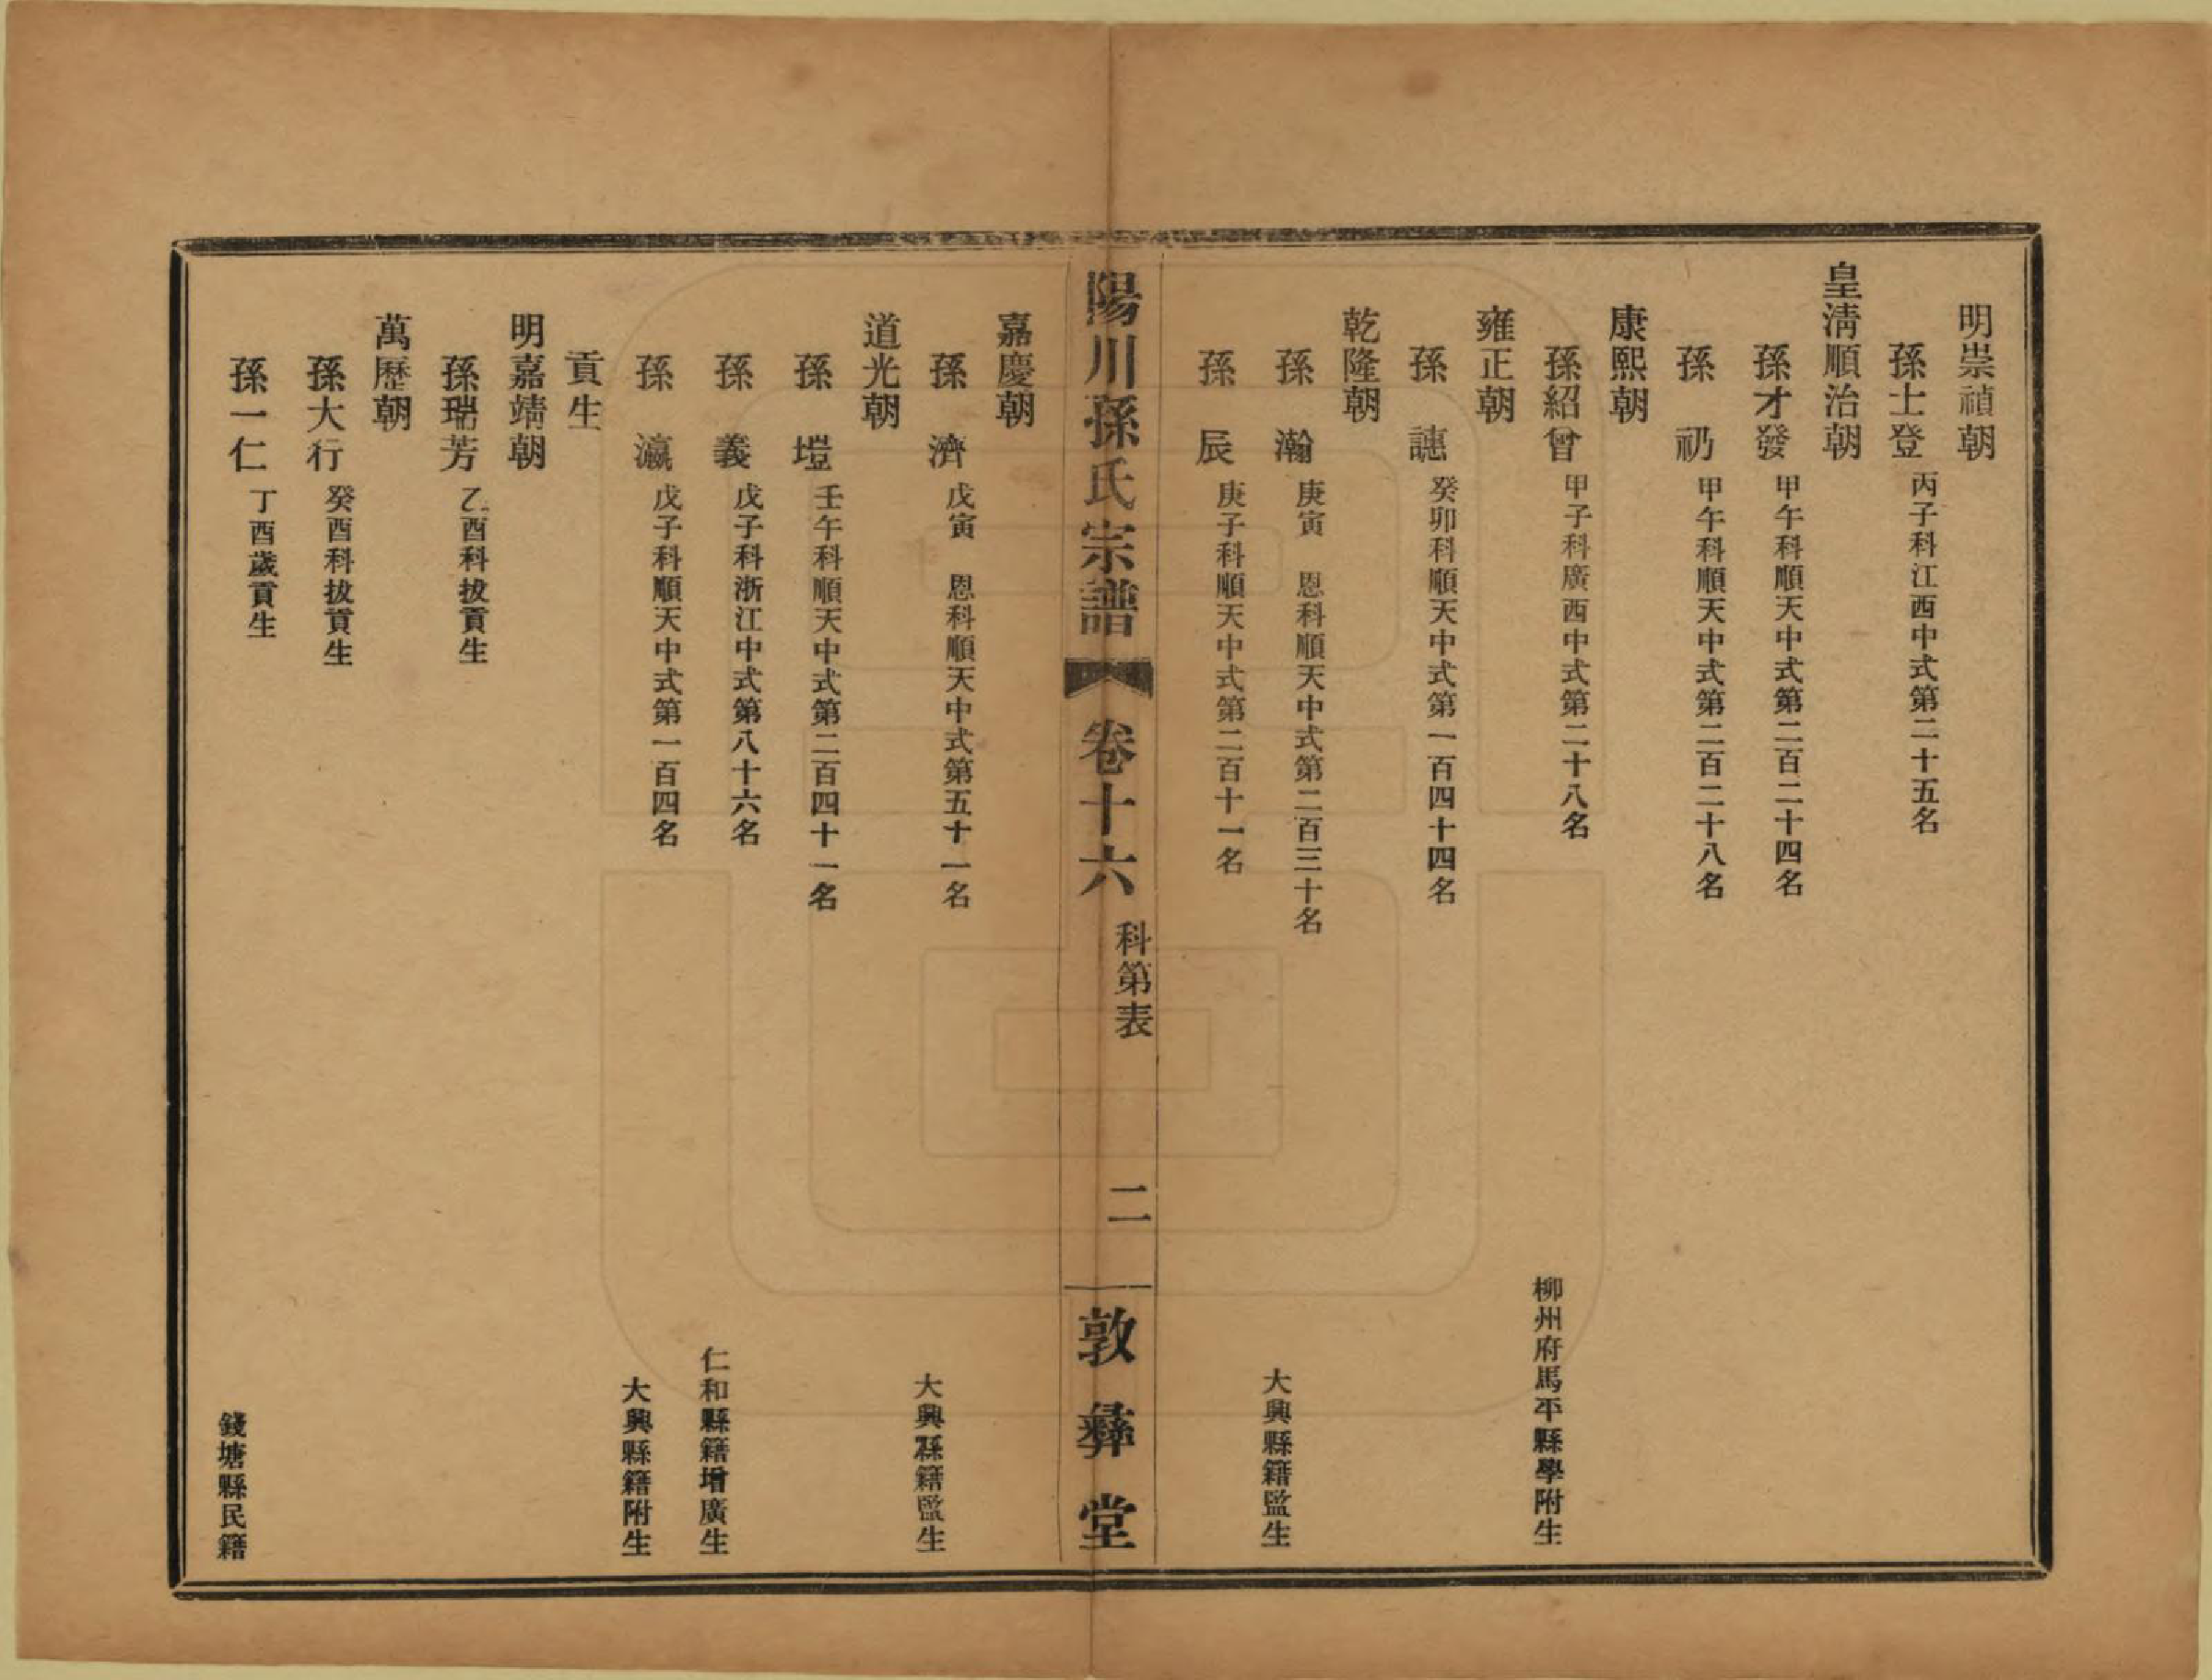 明崇禎朝
孫士登 丙子科江西中式第二十五名
皇淸順治朝
孫才發 甲午科順天中式第二百二十四名
孫 礽 甲午科順天中式第二百二十八名
康熙朝
孫紹曾 甲子科廣西中式第二十八名 柳州府馬平縣學附生
雍正朝
孫 譓 癸卯科順天中式第一百四十四名
乾隆朝
孫 瀚 庚寅 恩科順天中式第二百三十名 大興縣籍監生
孫 辰 庚子科順天中式第二百十一名
陽川孫氏宗譜 卷十六 科第表 二 敦彝堂
嘉慶朝
孫 濟 戊寅 恩科順天中式第五十一名 大興縣籍監生
道光朝
孫 塏 壬午科順天中式第二百四十一名
孫 義 戊子科浙江中式第八十六名 仁和縣籍增廣生
孫 瀛 戊子科順天中式第一百四名 大興縣籍附生
貢生
明嘉靖朝
孫瑞芳 乙酉科拔貢生
萬歷朝
孫大行 癸酉科拔貢生
孫一仁 丁酉歲貢生 錢塘縣民籍